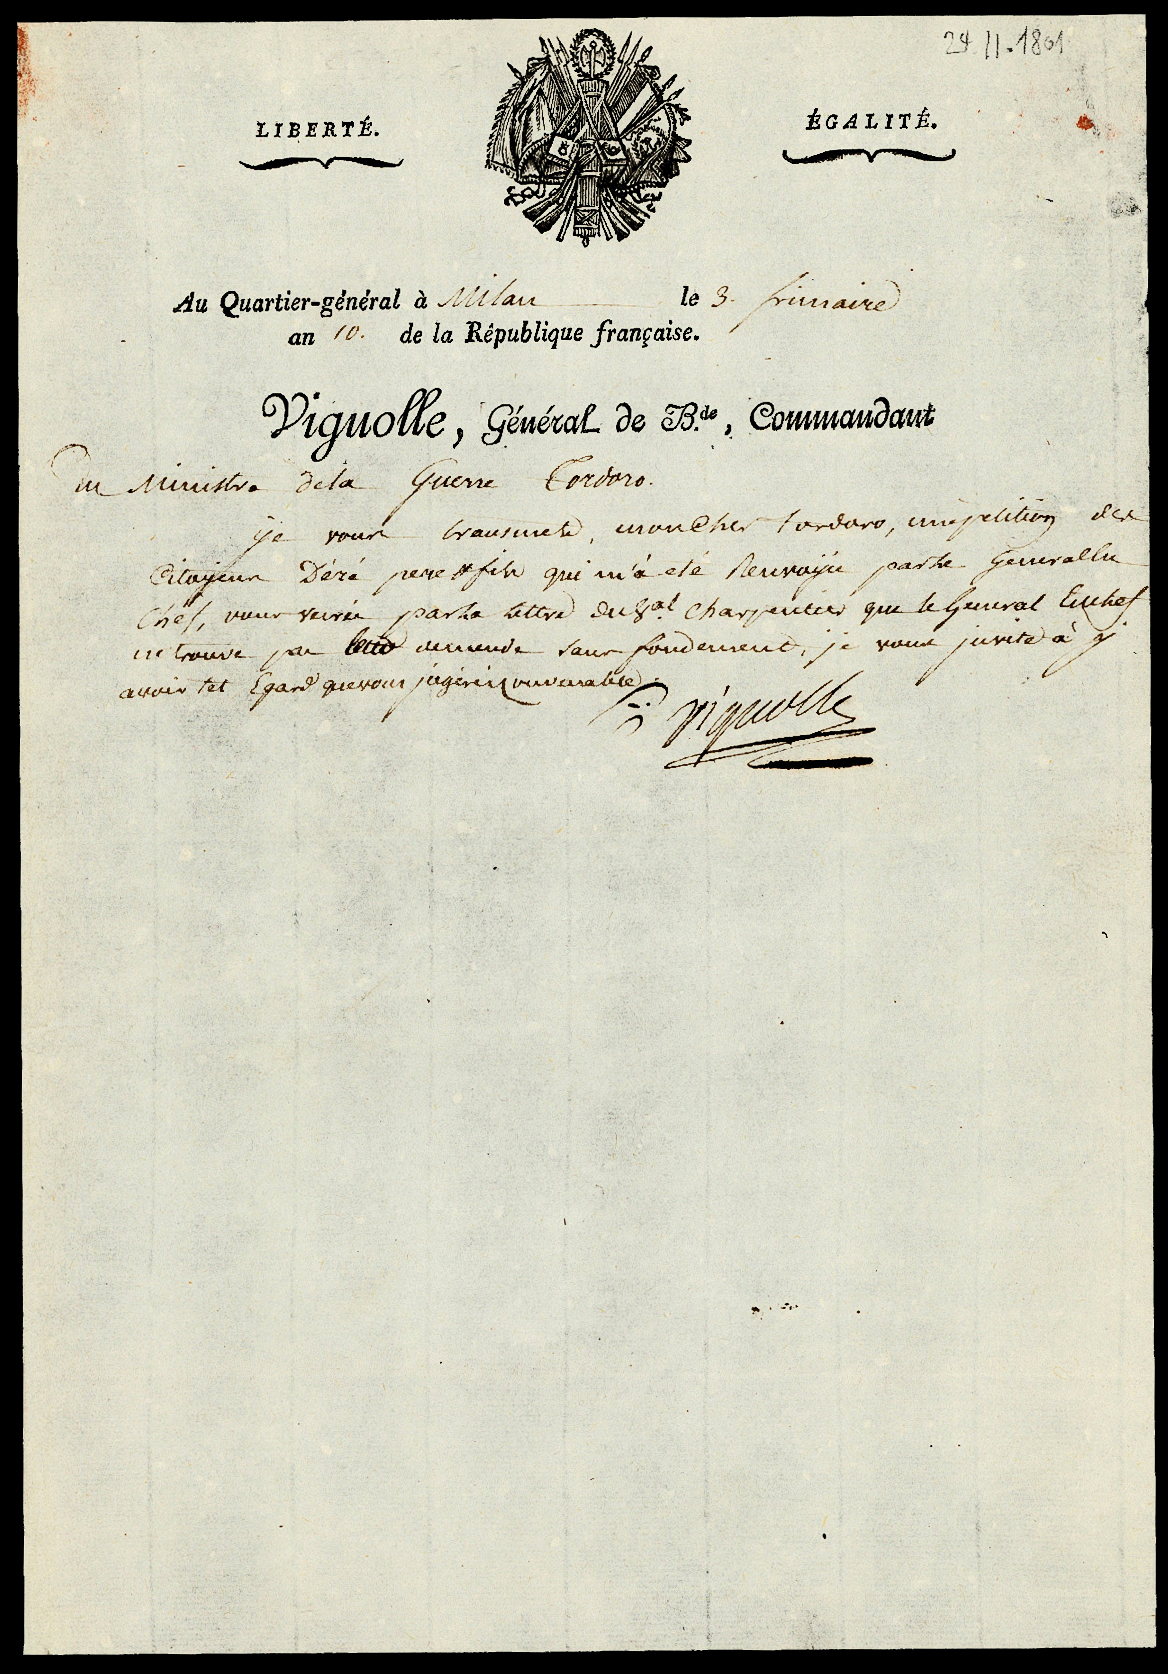 24.11.1801
LIBERTÉ.
ÉGALITÉ.
Au Quartier-général à Milan le 3. frimaire
an 10. de la République française.
Vignolle, Général de B.de, Commandant
Au Ministre de la Guerre Tordoro.
je vous transmets, mon cher tordoro, une pétition des
Citoyens Déré pere et fils qui m'a été Renvoyée par le General En
Chef, vous verrez par la lettre du Gal Charpentier que le General En chef
ne trouve pas demande sans fondement, je vous invite à y
avoir tel Egard que vous jugerez convenable.
Vignolle